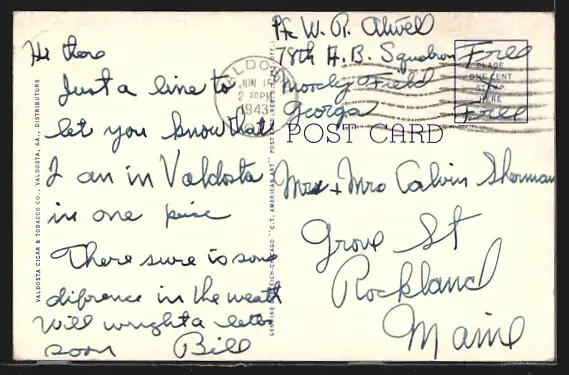 Pfc W. R. Atwell
78th A. B. Squadron
Moody Field
Georga
Free
Free
PLACE
ONE CENT
STAMP
HERE
VALDOSTA
JUN 15
2 30 PM
1943
POST CARD
Hi there
Just a line to
let you know that
I am in Valdosta
in one peice
There sure is some
difrence in the weath
Will wright a letter
soon Bill
Mr + Mrs Calvin Sherman
Grove St
Rockland
Maine
VALDOSTA CIGAR & TOBACCO CO., VALDOSTA, GA., DISTRIBUTORS
GENUINE CURTEICH-CHICAGO "C.T. AMERICAN ART" POST